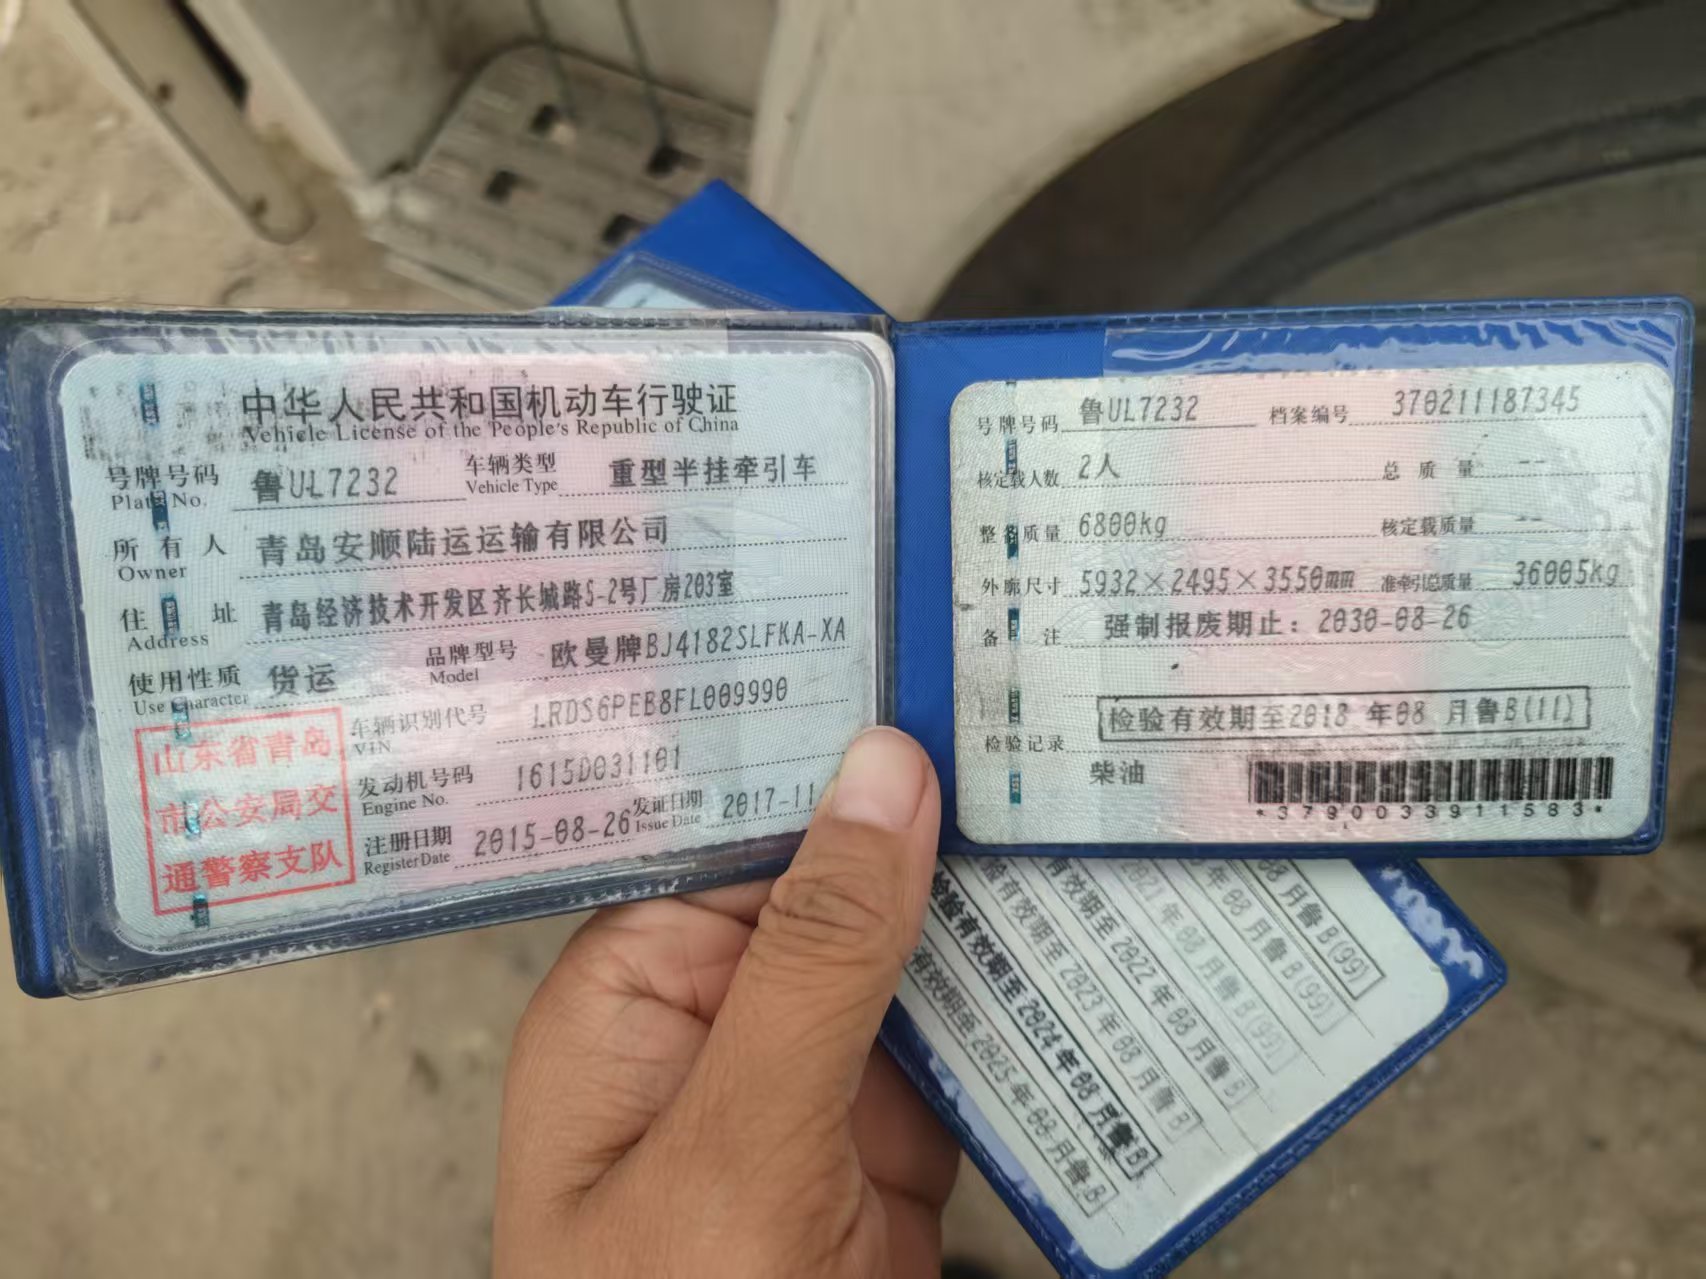 中华人民共和国机动车行驶证
Vehicle License of the People's Republic of China
号牌号码 鲁UL7232 车辆类型 重型半挂牵引车
Plate No. Vehicle Type
所有人 青岛安顺陆运运输有限公司
Owner
住址 青岛经济技术开发区齐长城路5-2号厂房203室
Address
使用性质 货运 品牌型号 欧曼牌BJ4182SLFKA-XA
Use Character Model
车辆识别代号 LRDS6PEB8FL009990
VIN
发动机号码 1615D031101
Engine No.
注册日期 2015-08-26 发证日期 2017-11
Register Date Issue Date
山东省青岛
市公安局交
通警察支队
号牌号码 鲁UL7232 档案编号 370211187345
核定载人数 2人 总质量 --
整备质量 6800kg 核定载质量 --
外廓尺寸 5932×2495×3550mm 准牵引总质量 36005kg
备注 强制报废期止：2030-08-26
检验有效期至2018年08月鲁B(11)
检验记录
柴油
*3790033911583*
08月鲁B(99)
年08月鲁B(99)
2021年08月鲁B(99)
有效期至2022年08月鲁B
检有效期至2023年08月鲁B
检验有效期至2024年08月鲁B
有效期至2025年08月鲁B